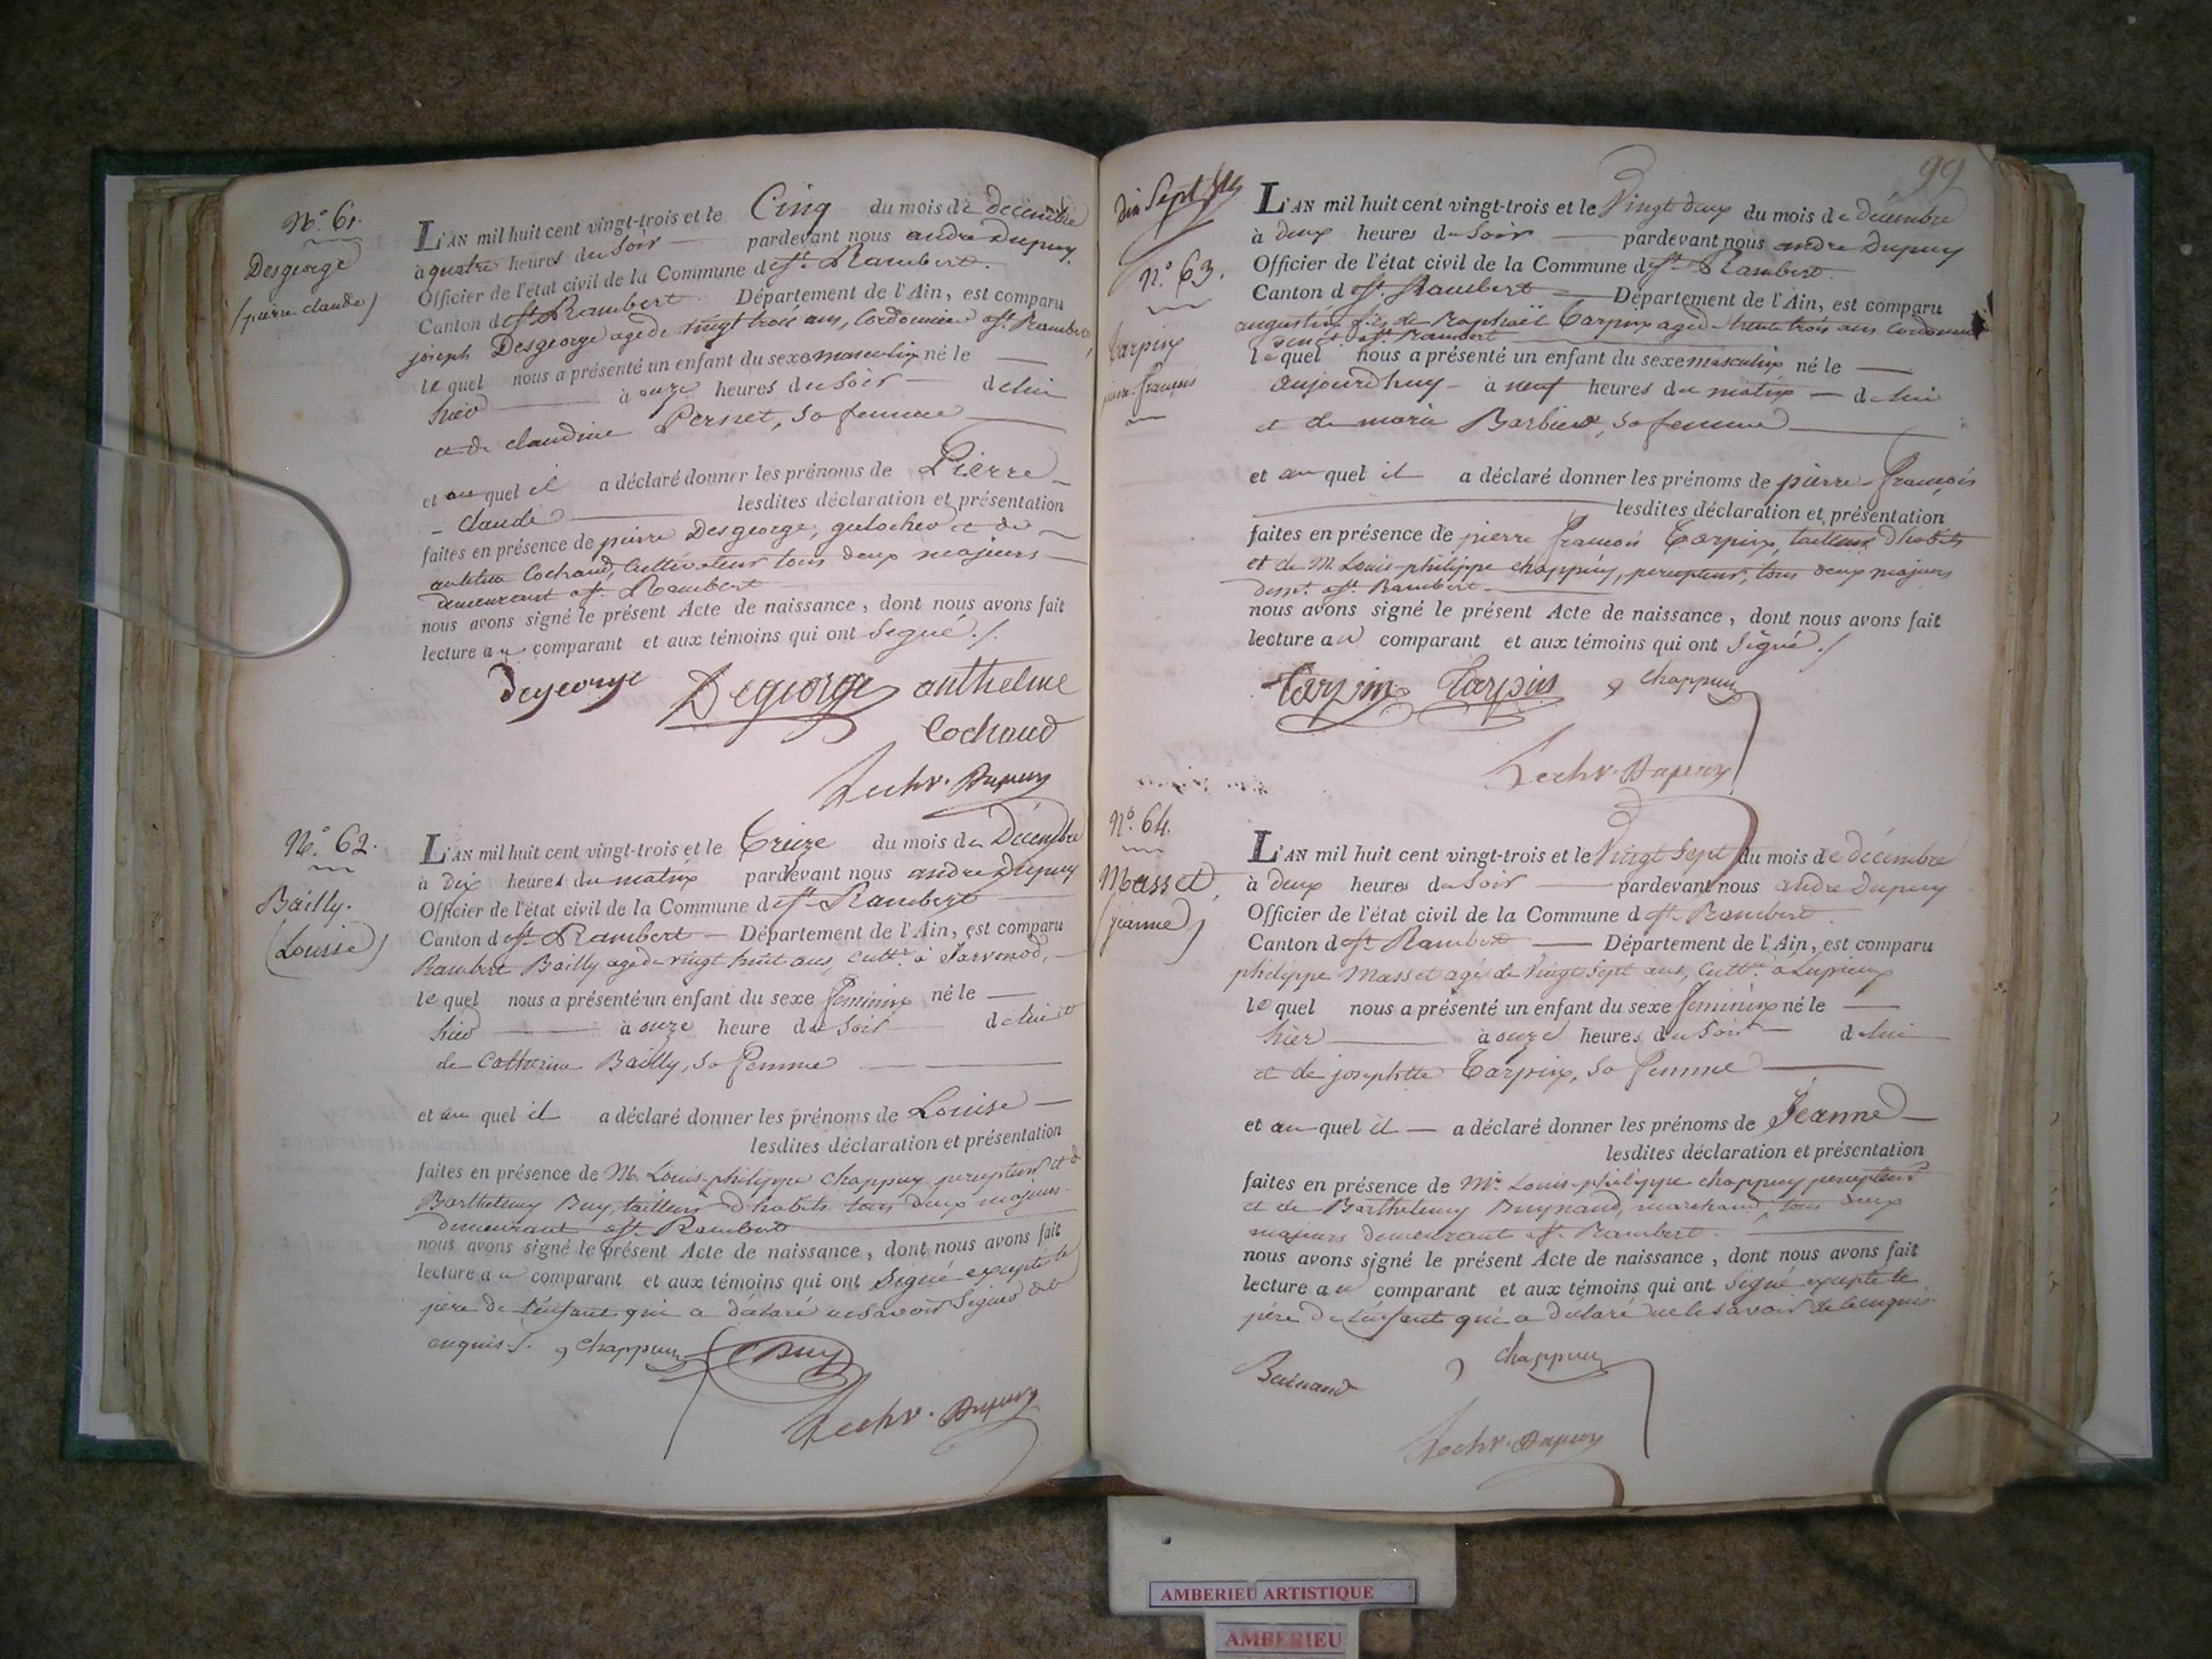 N.º 61.
Desgeorge
(pierre claude)
L'AN mil huit cent vingt-trois et le Cinq du mois de décembre
à quatre heures du Soir pardevant nous andré Dupuy
Officier de l'état civil de la Commune de St. Rambert.
Canton de St. Rambert Département de l'Ain, est comparu
joseph Desgeorge agé de vingt trois ans, Cordonnier a St. Rambert,
le quel nous a présenté un enfant du sexe masculin né le
hier à onze heures du Soir de lui
et de claudine Pernet, sa femme
et au quel il a déclaré donner les prénoms de Pierre
- Claude lesdites déclaration et présentation
faites en présence de pierre Desgeorge, et de
antelme Cochaud, Cultivateur tous deux majeurs
demeurant a St. Rambert
nous avons signé le présent Acte de naissance, dont nous avons fait
lecture au comparant et aux témoins qui ont Signé ./.
desgeorge Degeorge anthelme
Cochaud
Dupuy
N.º 62.
Bailly.
(Louise)
L'AN mil huit cent vingt-trois et le Treize du mois de Décembre
à Dix heures du matin pardevant nous andré Dupuy
Officier de l'état civil de la Commune de St. Rambert
Canton de St. Rambert Département de l'Ain, est comparu
Rambert Bailly agé de vingt huit ans, cultr. à
le quel nous a présenté un enfant du sexe feminin né le
hier à onze heure du Soir de lui et
de Catherine Bailly, sa femme
et au quel il a déclaré donner les prénoms de Louise
lesdites déclaration et présentation
faites en présence de M. Louis-philippe Chappuy percepteur et de
Barthelemy Buy, tailleur d'habits tous deux majeurs
demeurant a St. Rambert
nous avons signé le présent Acte de naissance, dont nous avons fait
lecture au comparant et aux témoins qui ont Signé excepté le
père de l'enfant qui a déclaré ne savoir Signer de ce
enquis ./. Chappuy Buy
Dupuy
99
dix Sept
N.º 63.
Tarpin
pierre françois
L'AN mil huit cent vingt-trois et le Vingt deux du mois de décembre
à deux heures du Soir pardevant nous andré Dupuy
Officier de l'état civil de la Commune de St. Rambert.
Canton de St. Rambert Département de l'Ain, est comparu
augustin fils de Raphaël Tarpin agé de trente trois ans cordonnier
demt. a St. Rambert
le quel nous a présenté un enfant du sexe masculin né le
aujourdhuy à neuf heures du matin de lui
et de marie Barbier, sa femme
et au quel il a déclaré donner les prénoms de pierre-françois
lesdites déclaration et présentation
faites en présence de pierre françois Tarpin, tailleur d'habits
et de M. Louis-philippe Chappuy, percepteur, tous deux majeurs
demt. a St. Rambert
nous avons signé le présent Acte de naissance, dont nous avons fait
lecture au comparant et aux témoins qui ont Signé ./
Tarpin Tarpin Chappuy
Dupuy
N.º 64.
Masset
(jeanne)
L'AN mil huit cent vingt-trois et le Vingt Sept du mois de décembre
à deux heures du Soir pardevant nous andré Dupuy
Officier de l'état civil de la Commune de St. Rambert.
Canton de St. Rambert Département de l'Ain, est comparu
philippe Masset agé de vingt Sept ans, Cultr. à Lupieux
le quel nous a présenté un enfant du sexe feminin né le
hier à onze heures du Soir de lui
et de josephtte Tarpin, sa femme
et au quel il a déclaré donner les prénoms de Jeanne
lesdites déclaration et présentation
faites en présence de Mr. Louis-philippe Chappuy percepteur
et de Barthelemy Buynand, marchand, tous deux
majeurs demeurant a St. Rambert.
nous avons signé le présent Acte de naissance, dont nous avons fait
lecture au comparant et aux témoins qui ont Signé excepté le
père de l'enfant qui a déclaré ne le savoir de ce enquis.
Buinand Chappuy
Dupuy
AMBERIEU ARTISTIQUE
AMBERIEU